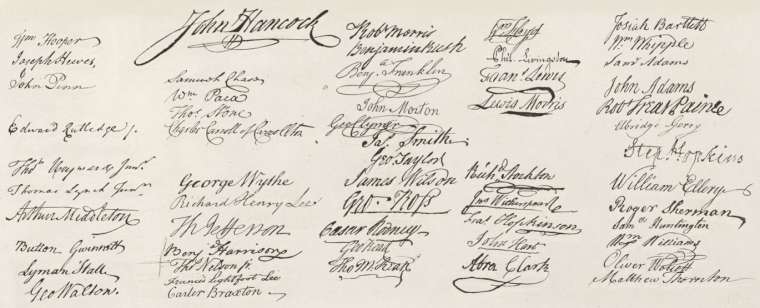 John Hancock
Wm Hooper
Joseph Hewes,
John Penn
Edward Rutledge /.
Thos Heyward Junr.
Thomas Lynch Junr.
Arthur Middleton
Button Gwinnett
Lyman Hall
Geo Walton.
Samuel Chase
Wm Paca
Thos Stone
Charles Carroll of Carrollton
George Wythe
Richard Henry Lee
Th Jefferson
Benj Harrison
Thos Nelson jr.
Francis Lightfoot Lee
Carter Braxton
Robt Morris
Benjamin Rush
Benj Franklin
John Morton
Geo Clymer
Jas Smith
Geo Taylor
James Wilson
Geo. Ross
Caesar Rodney
Geo Read
Tho M:Kean
Wm Floyd
Phil. Livingston
Frans Lewis
Lewis Morris
Richd Stockton
Jno Witherspoon
Fras Hopkinson
John Hart
Abra Clark
Josiah Bartlett
Wm Whipple
Saml Adams
John Adams
Robt Treat Paine
Elbridge Gerry
Step. Hopkins
William Ellery
Roger Sherman
Saml Huntington
Wm Williams
Oliver Wolcott
Matthew Thornton